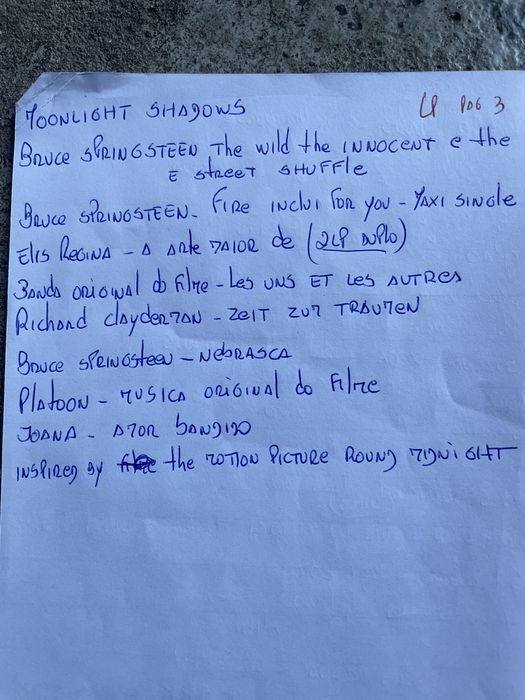 MOONLIGHT SHADOWS LP PAG 3
BRUCE SPRINGSTEEN The wild the INNOCENT e the
E street SHUFFle
BRUCE SPRINGSTEEN - FIRE INCLUI FOR YOU - MAXI SINGLE
Elis REGINA - A ARTE MAIOR de (2LP DUPLO)
BANDA ORIGINAL do filme - Les UNS ET Les AUTRES
Richard clayderman - ZEIT ZUM TRAUMEN
BRUCE SPRINGSteen - NEBRASCA
PLATOON - MUSICA ORIGINAL do FILME
JOANA - AMOR BANDIDO
INSPIRED BY the MOTION PICTURE ROUND MIDNIGHT